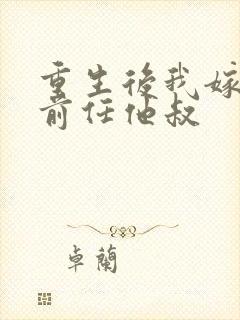 重生後我嫁
前任他叔
卓蘭